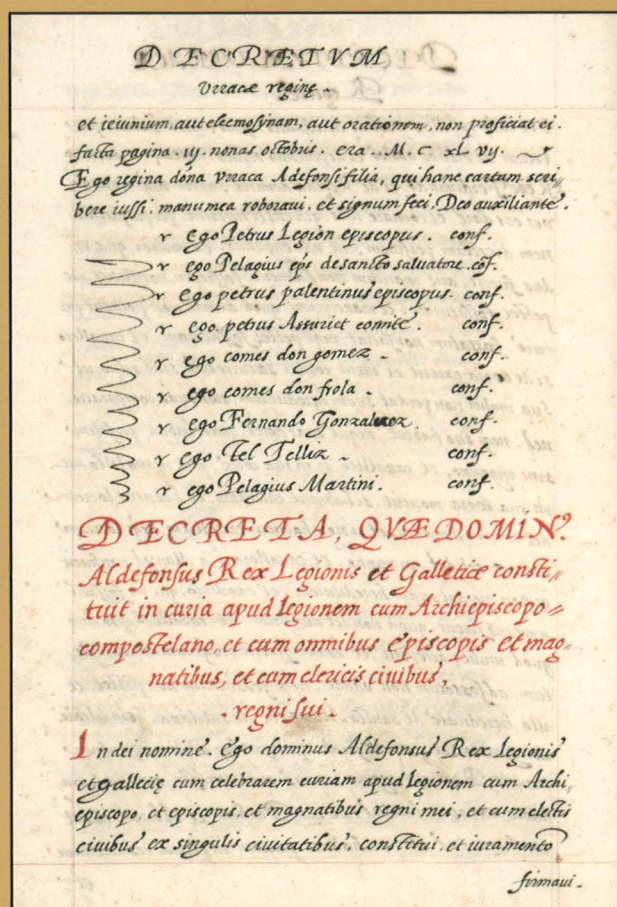 DECRETVM
Vrracæ reginę.
et ieiunium, aut elecmosynam, aut orationem, non proficiat ei.
facta pagina .iij. nonas octobris. era .. M. C xL vij.
Ego regina dóna vrraca Adefonsi filia, qui hanc cartam scri//
bere iussi. manu mea roboraui, et signum feci, Deo auxiliante.
r ego Petrus Legion episcopus. conf.
r ego Pelagius eps de sancto saluatore. cõf.
r ego petrus palentinus episcopus. conf.
r ego petrus Assuriet comite. conf.
r ego comes don gomez. conf.
r ego comes don frola. conf.
r ego Fernando Gonzaluez. conf.
r ego Tel Telliz. conf.
r ego Pelagius Martini. conf.
DECRETA, QVÆ DOMIN⁹.
Aldefonsus Rex Legionis et Galletiæ consti//
tuit in curia apud legionem cum Archiepiscopo=
compostelano, et cum omnibus episcopis et mag=
natibus, et cum clericis ciuibus,
.regni sui.
In dei nomine. ego dominus Aldefonsus Rex Legionis
et gallecię cum celebrarem curiam apud legionem cum Archi,
episcopo, et episcopis, et magnatibus regni mei, et cum electis
ciuibus ex singulis ciuitatibus, constitui, et iuramento
firmaui.